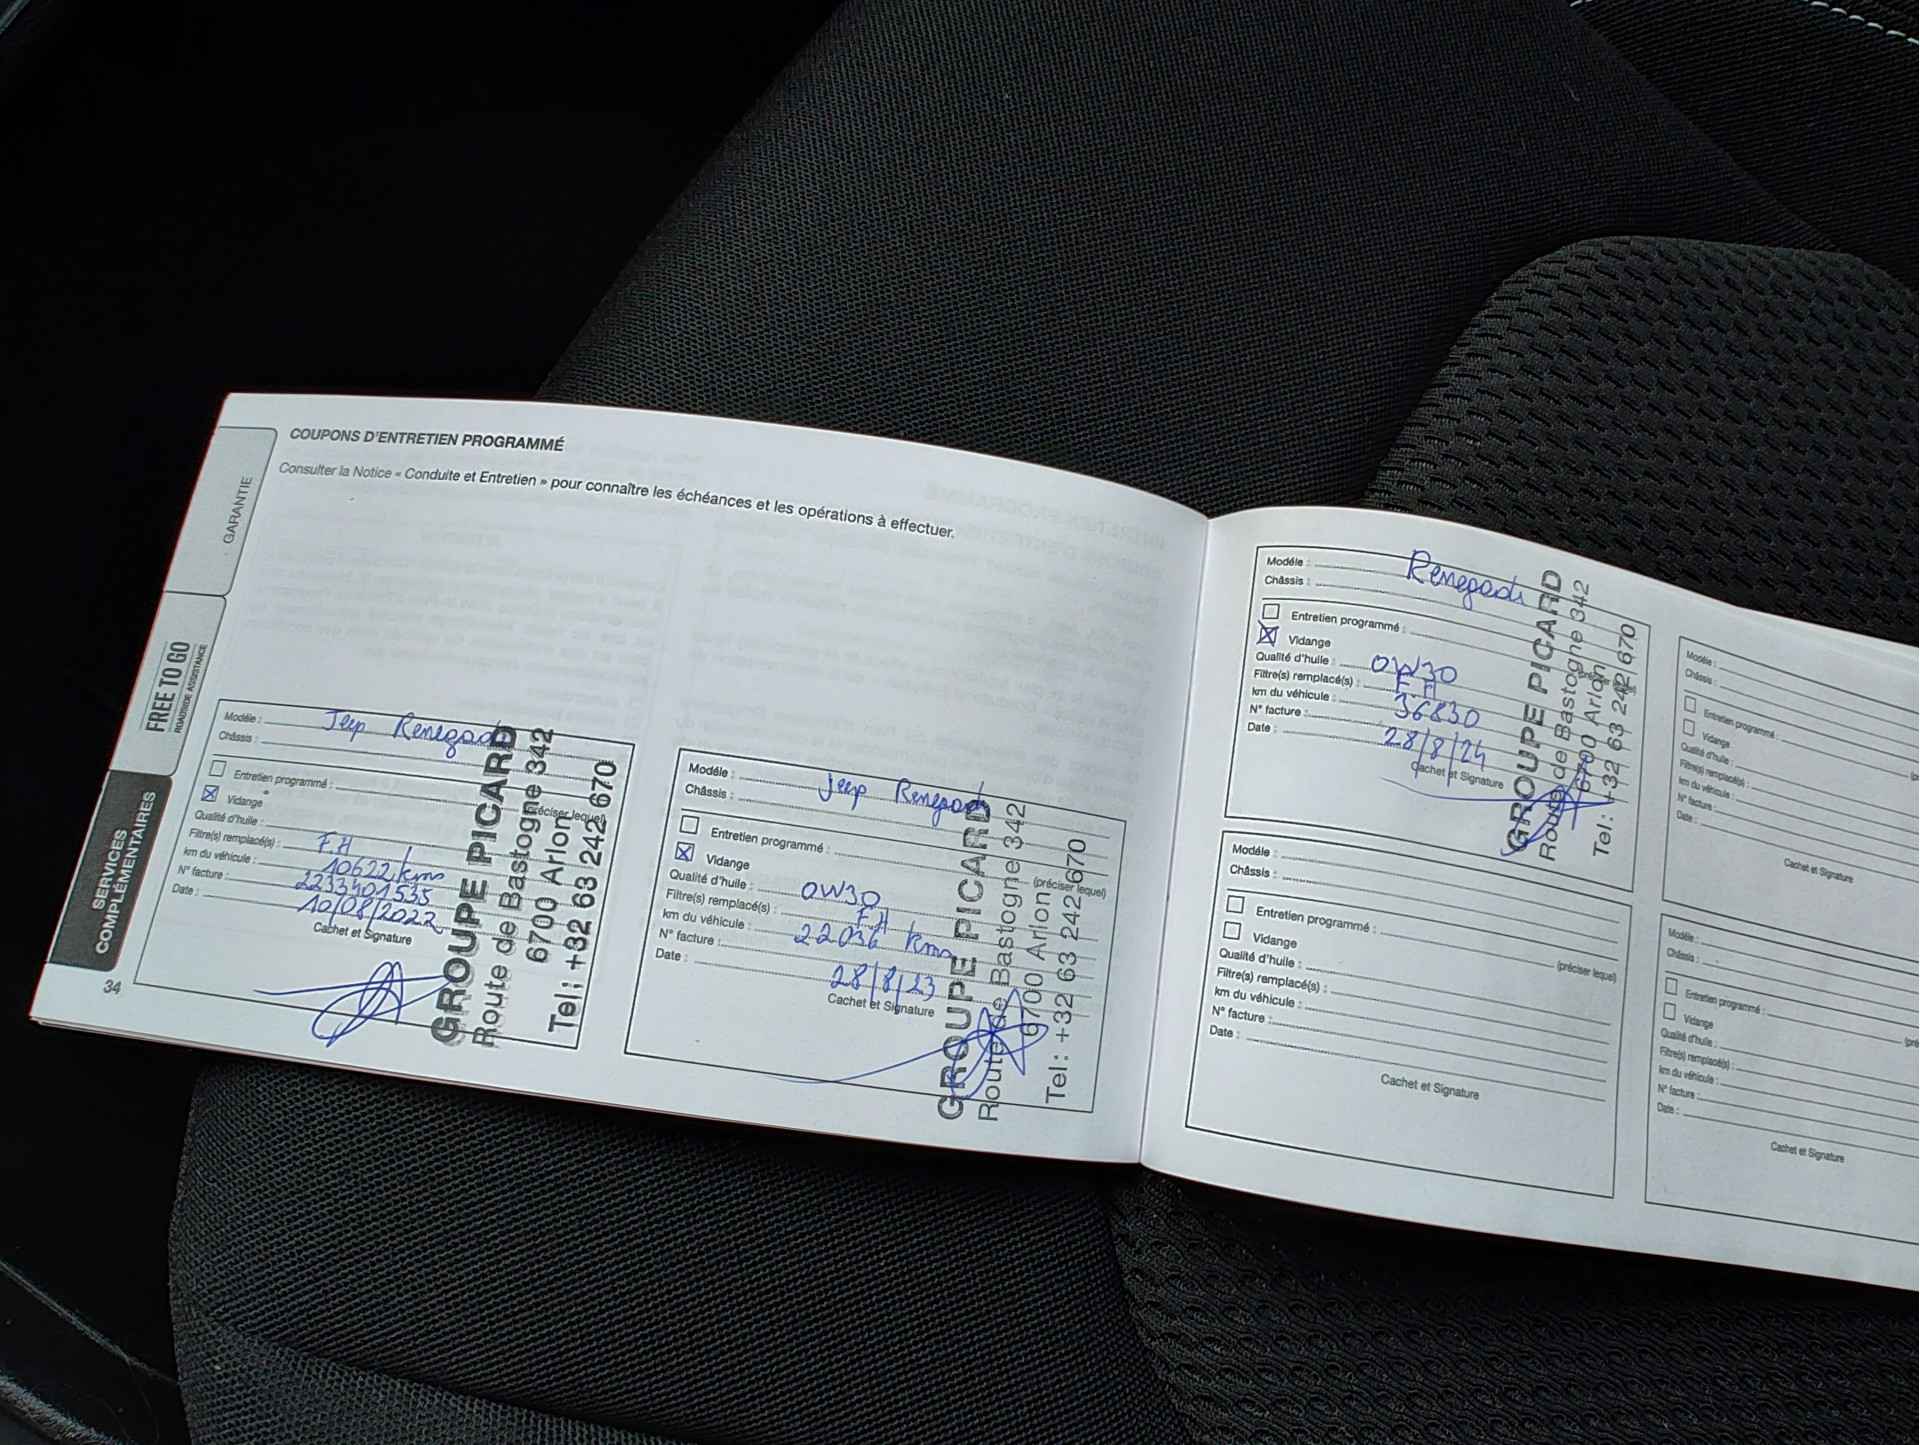 COUPONS D'ENTRETIEN PROGRAMMÉ
Consulter la Notice « Conduite et Entretien » pour connaître les échéances et les opérations à effectuer.
GARANTIE
FREE TO GO
ROADSIDE ASSISTANCE
SERVICES
COMPLÉMENTAIRES
34
Modéle : Jeep Renegade
Châssis :
Entretien programmé :
(préciser lequel)
Vidange
Qualité d'huile :
Filtre(s) remplacé(s) : F.H
km du véhicule : 10622 kms
N° facture : 2233401535
Date : 10/08/2022
Cachet et Signature
GROUPE PICARD
Route de Bastogne 342
6700 Arlon
Tel : +32 63 242 670
Modéle : Jeep Renegade
Châssis :
Entretien programmé :
(préciser lequel)
Vidange
Qualité d'huile : 0W30
Filtre(s) remplacé(s) : F.H
km du véhicule : 22036 kms
N° facture :
Date : 28/8/23
Cachet et Signature
GROUPE PICARD
Route de Bastogne 342
6700 Arlon
Tel : +32 63 242 670
Modéle : Renegade
Châssis :
Entretien programmé :
Vidange
Qualité d'huile : 0W30
Filtre(s) remplacé(s) : F.H
km du véhicule : 36830
N° facture :
Date : 28/8/24
Cachet et Signature
GROUPE PICARD
Route de Bastogne 342
6700 Arlon
Tel : +32 63 242 670
Modéle :
Châssis :
Entretien programmé :
(préciser lequel)
Vidange
Qualité d'huile :
Filtre(s) remplacé(s) :
km du véhicule :
N° facture :
Date :
Cachet et Signature
Modéle :
Châssis :
Entretien programmé :
Vidange
Qualité d'huile :
Filtre(s) remplacé(s) :
km du véhicule :
N° facture :
Date :
Cachet et Signature
Modéle :
Châssis :
Entretien programmé :
Vidange
Qualité d'huile :
Filtre(s) remplacé(s) :
km du véhicule :
N° facture :
Date :
Cachet et Signature